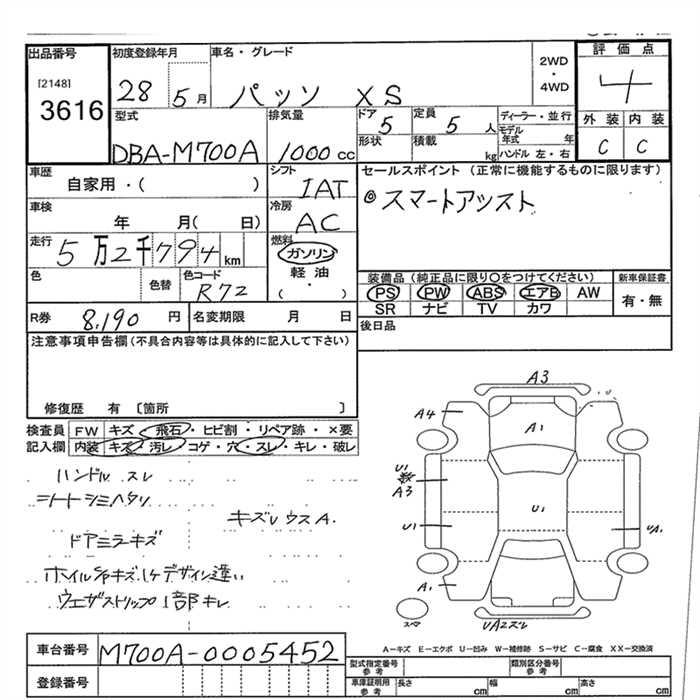 出品番号 初度登録年月 車名・グレード 2WD・4WD 評価点
[2148]
3616 28 5月 パッソ XS 4
型式 排気量 ドア 定員 ディーラー・並行 外装 内装
DBA-M700A 1000cc 5 5人 モデル年式 年 C C
形状 積載 kg ハンドル 左・右
車歴 シフト セールスポイント (正常に機能するものに限ります)
自家用・( ) IAT ◎スマートアシスト
車検 冷房
年 月( 日) AC
走行 燃料
5万2千794km ガソリン
色 色替 色コード 軽油 装備品 (純正品に限り○をつけてください) 新車保証書
R72 ・( ) PS PW ABS エアB AW 有・無
SR ナビ TV カワ
R券 8,190円 名変期限 月 日 後日品
注意事項申告欄(不具合内容等は具体的に記入して下さい)
修復歴 有 〔箇所 〕
検査員 FW キズ・飛石・ヒビ割・リペア跡・×要
記入欄 内装 キズ・汚レ・コゲ・穴・スレ・キレ・破レ
ハンドル スレ
シートシミヘタリ
キズレウスA.
ドアミラーキズ
ホイルSPキズ1ケデザイン違い
ウェザストリップ1部キレ
A3
A4 A1
U1
A3
U1 U1 UA.
A1
スペア UA2スレ
A-キズ E-エクボ U-凹み W-補修跡 S-サビ C-腐食 XX-交換済
車台番号 M700A-0005452
登録番号
型式指定番号 参考 類別区分番号 参考
車庫証明用 参考 長さ cm 幅 cm 高さ cm